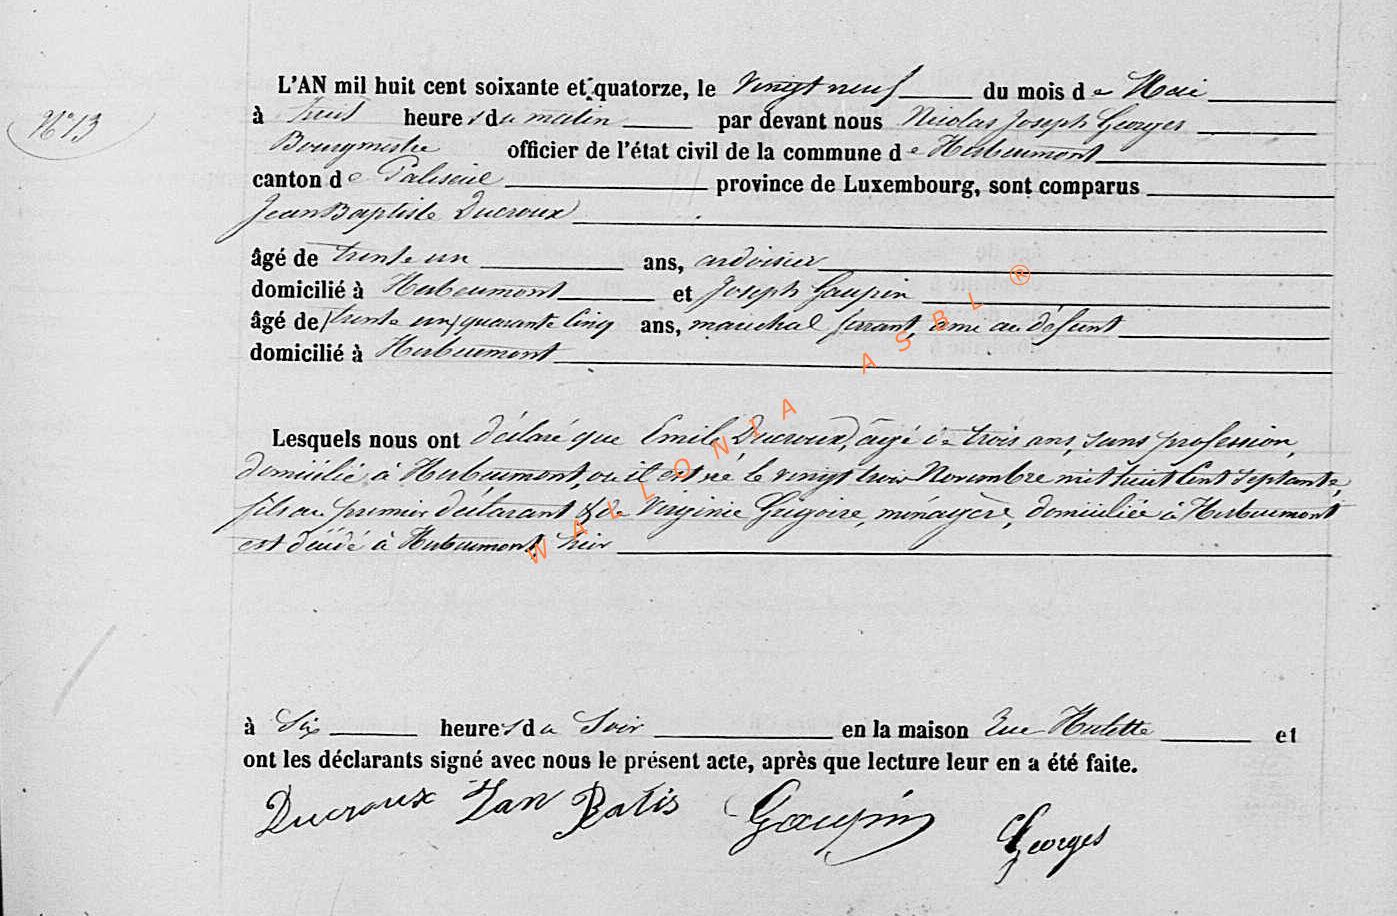 L'AN mil huit cent soixante et quatorze, le vingt neuf du mois de Mai
N° 13
à huit heures du matin par devant nous Nicolas Joseph Georges
Bourgmestre officier de l'état civil de la commune de Herbeumont
canton de Paliseul province de Luxembourg, sont comparus
Jean Baptiste Ducroux
âgé de trente un ans, ardoisier
domicilié à Herbeumont et Joseph Gaupin
âgé de (trente un) quarante cinq ans, maréchal ferrant, ami au défunt
domicilié à Herbeumont
Lesquels nous ont déclaré que Emile Ducroux, âgé de trois ans, sans profession,
domicilié à Herbeumont, où il est né le vingt trois Novembre mil huit cent septante,
fils au premier déclarant & de Virginie Grégoire, ménagère, domiciliée à Herbeumont
est décédé à Herbeumont, hier
à Six heures du Soir en la maison Rue Hulette et
ont les déclarants signé avec nous le présent acte, après que lecture leur en a été faite.
Ducroux Jan Batis Gaupin Georges
WALLONIA ASBL ®